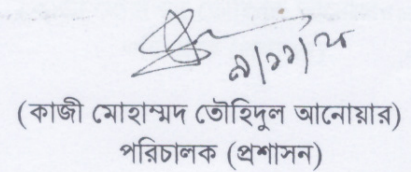 ৯/১১/২৫
(কাজী মোহাম্মদ তৌহিদুল আনোয়ার)
পরিচালক (প্রশাসন)